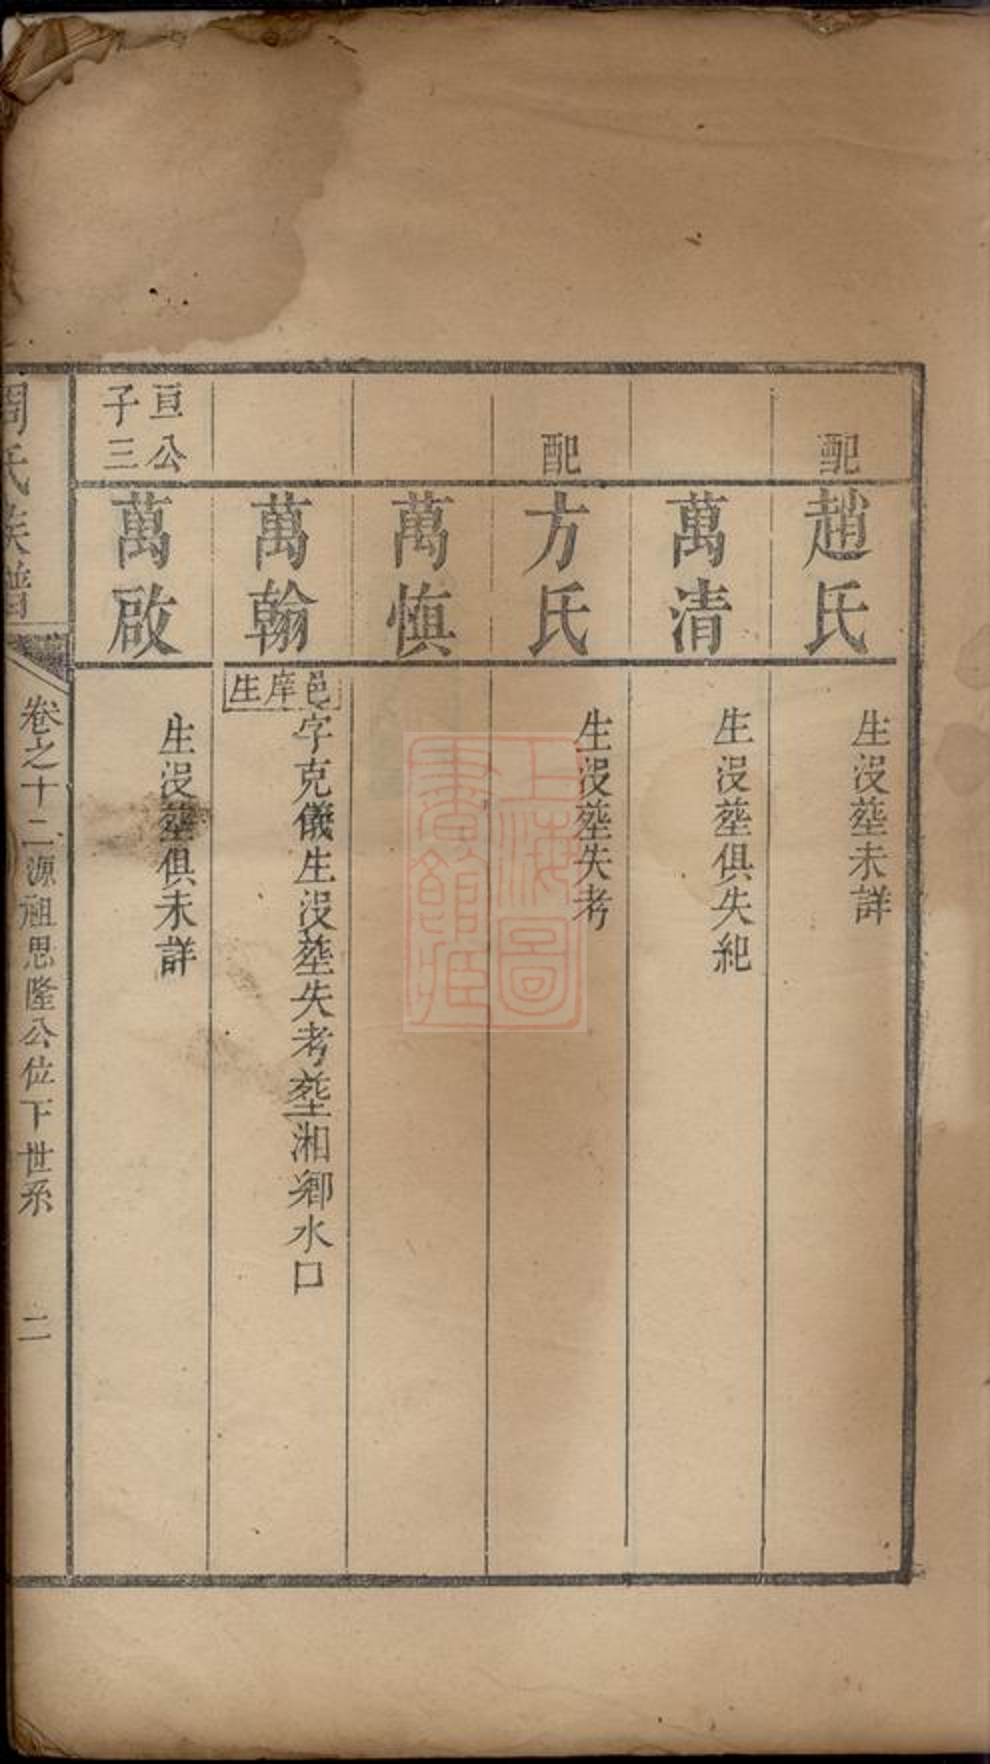 配
趙氏
生沒塟未詳
萬清
生沒塟俱失紀
配
方氏
生沒塟失考
萬慎
萬翰
邑庠生
字克儀生沒塟失考塟湘鄉水口
亘公
子三
萬啟
生沒塟俱未詳
周氏族譜
卷之十二源祖思隆公位下世系
二
上海圖
書館藏